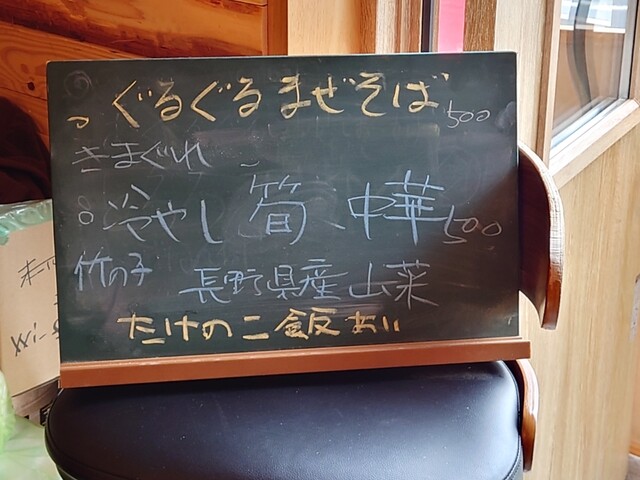 ぐるぐるまぜそば 500
きまぐれ
冷やし 筍 中華 500
竹の子 長野県産山菜
たけのこ飯あい